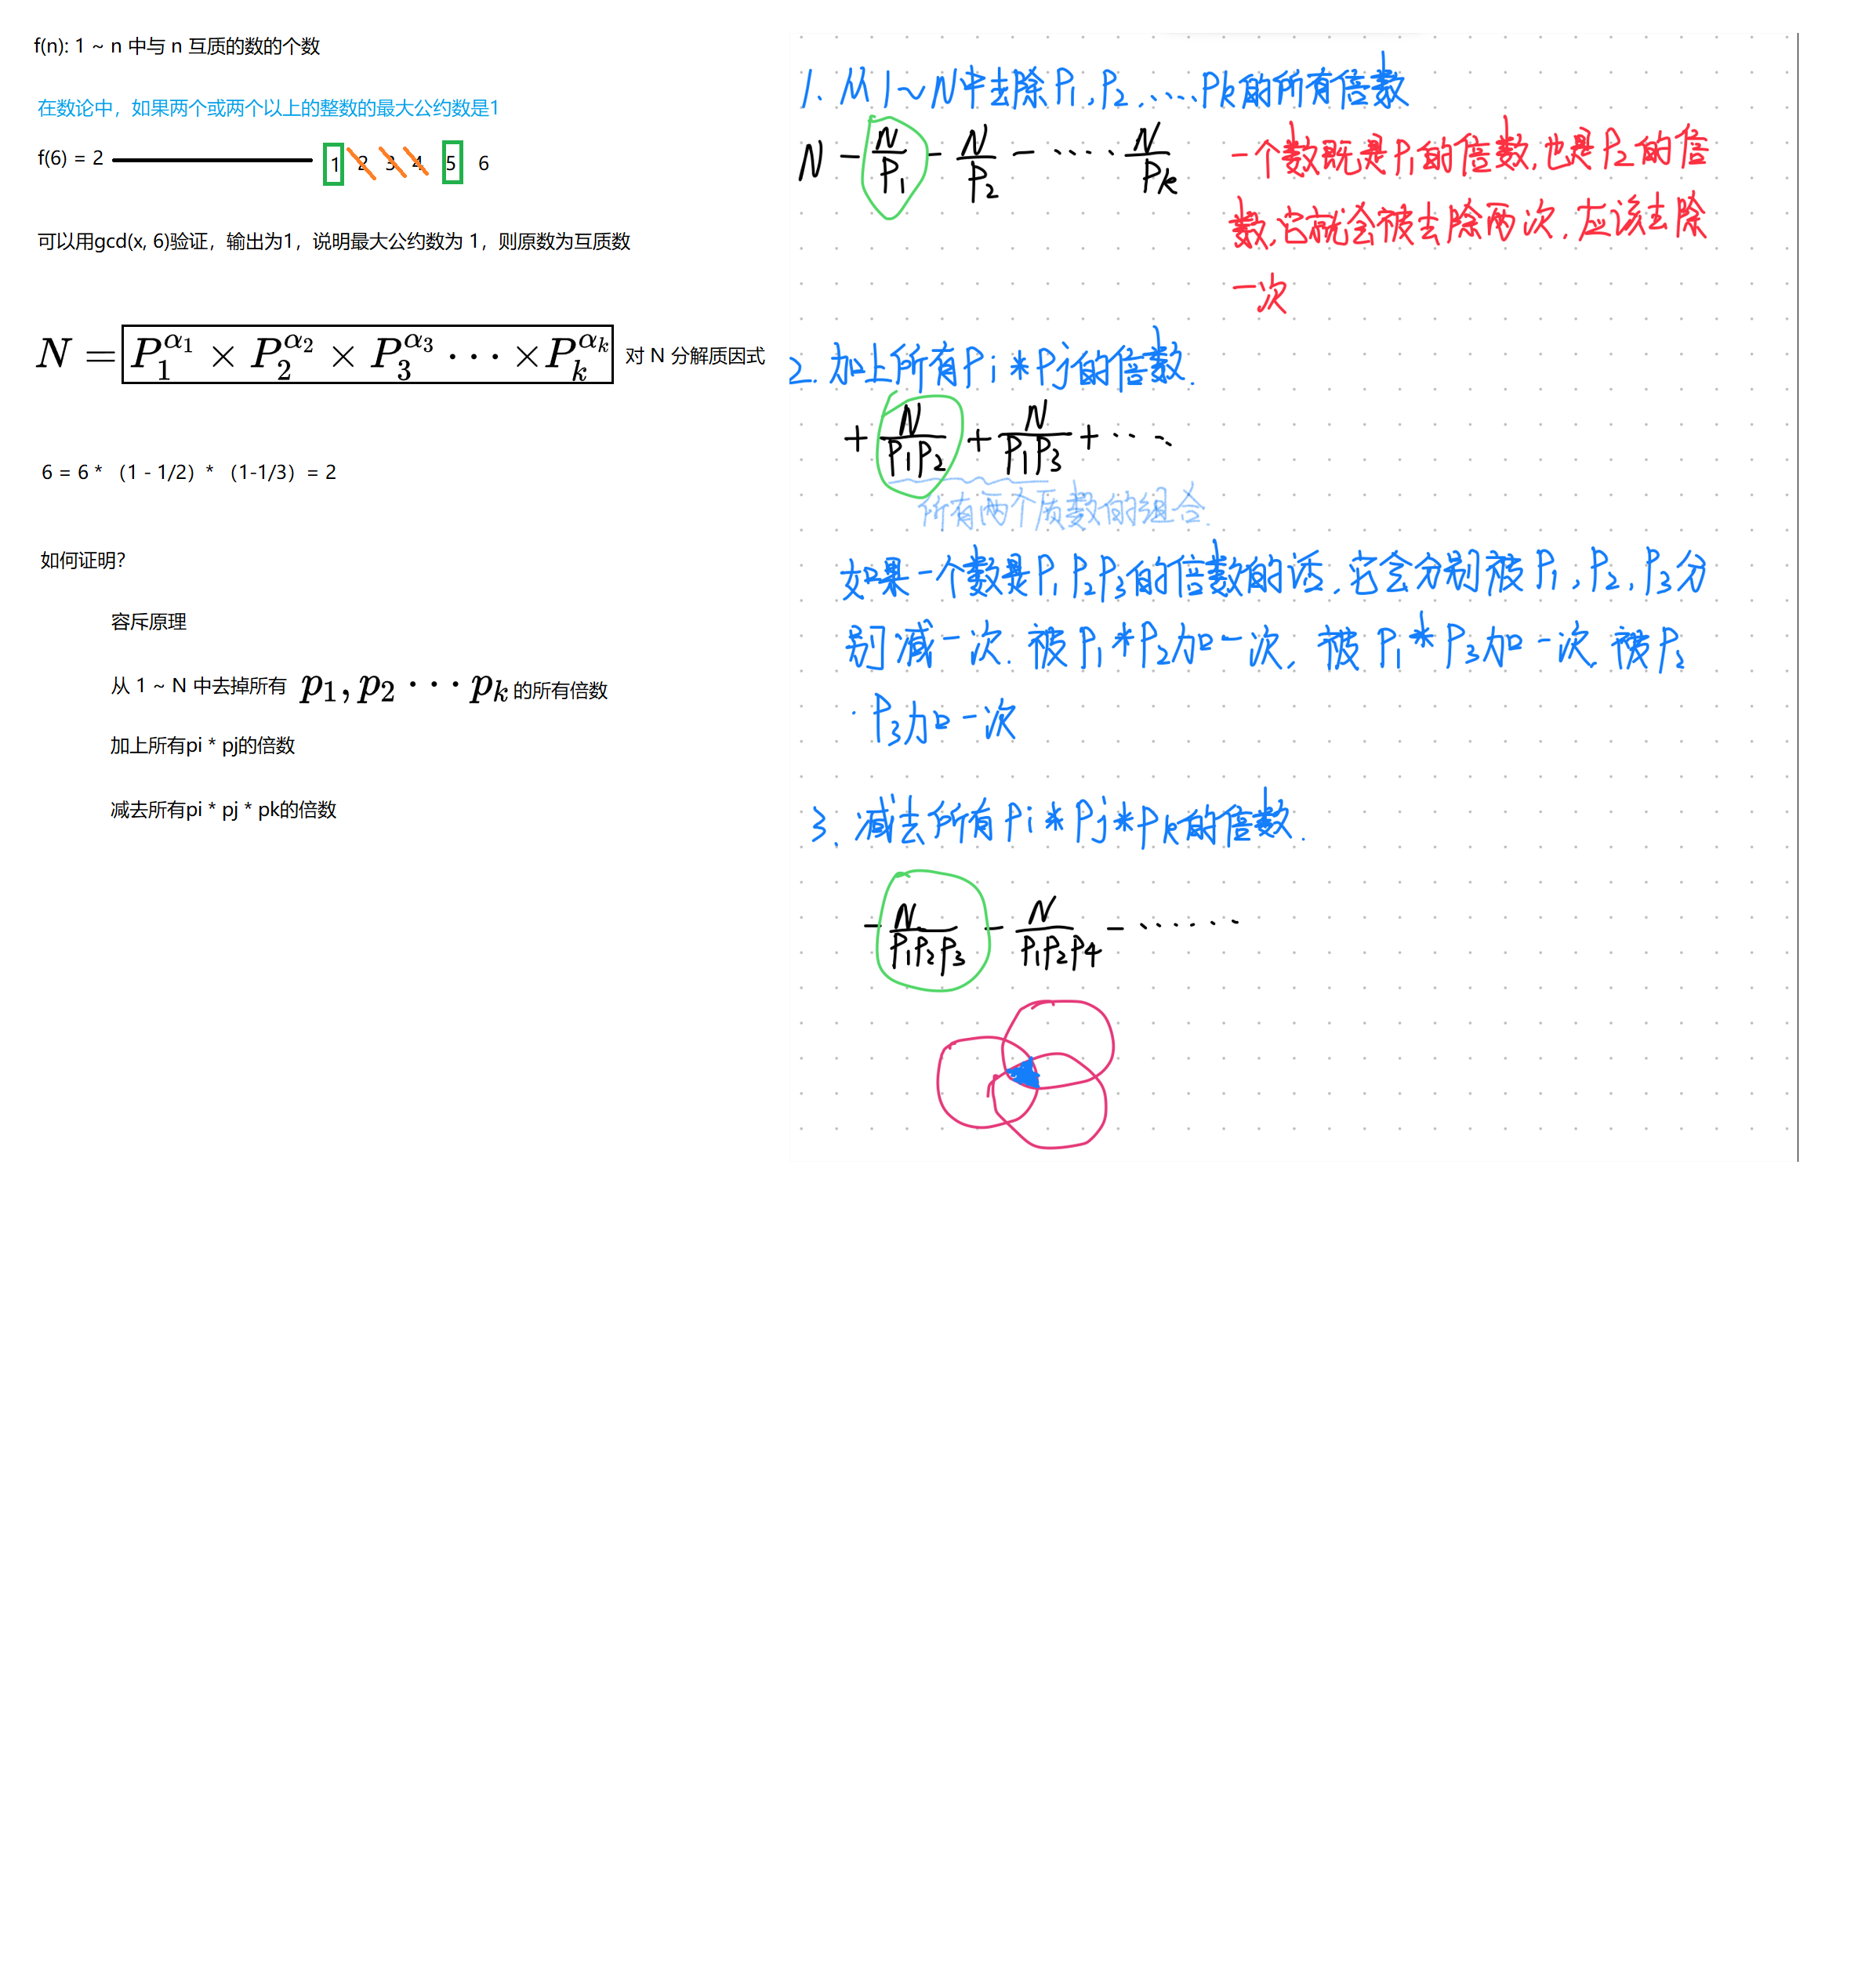 f(n): 1 ~ n 中与 n 互质的数的个数
在数论中，如果两个或两个以上的整数的最大公约数是1
f(6) = 2 1 2 3 4 5 6
可以用gcd(x, 6)验证，输出为1，说明最大公约数为 1，则原数为互质数
N = P₁^α₁ × P₂^α₂ × P₃^α₃ ··· × Pₖ^αₖ 对 N 分解质因式
6 = 6 * （1 - 1/2）* （1-1/3）= 2
如何证明？
容斥原理
从 1 ~ N 中去掉所有 p₁, p₂ ··· pₖ 的所有倍数
加上所有pi * pj的倍数
减去所有pi * pj * pk的倍数
1. 从1~N中去除P₁, P₂, .... Pk的所有倍数
N - N/P₁ - N/P₂ - ···· N/Pk
一个数既是P₁的倍数,也是P₂的倍
数,它就会被去除两次. 应该去除
一次
2. 加上所有Pi * Pj的倍数.
+ N/P₁P₂ + N/P₁P₃ + ····
所有两个质数的组合.
如果一个数是P₁P₂P₃的倍数的话,它会分别被P₁, P₂, P₃分
别减一次. 被P₁*P₂加一次, 被P₁*P₃加一次. 被P₂
·P₃加一次
3. 减去所有Pi*Pj*Pk的倍数.
- N/P₁P₂P₃ - N/P₁P₂P₄ - ······